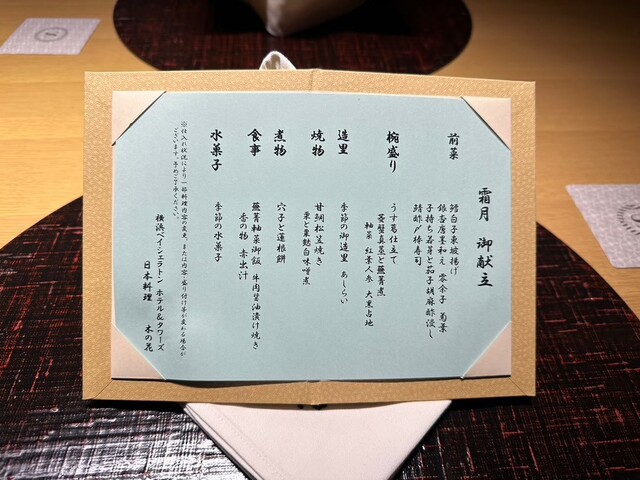 霜月 御献立
前菜
鱈白子東坡揚げ
銀杏唐墨和え 零余子 菊葉
子持ち若芽と茄子胡麻酢浸し
鯖酢〆棒寿司
椀盛り
うすい葛仕立て
菱蟹真薯と蕪菁煮
軸菜 紅葉人参 大黒占地
造里
季節の御造里 あしらい
焼物
甘鯛松笠焼き
栗と粟麩白味噌煮
煮物
穴子と蓮根餅
食事
蕪菁釉菜御飯 牛肉醤油漬け焼き
香の物 赤出汁
水菓子
季節の水菓子
※仕入れ状況により一部料理内容の変更、または内容・盛り付け等が変わる場合が
ございます。予めご了承ください。
横浜ベイシェラトン ホテル&タワーズ
日本料理 木の花